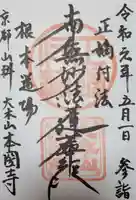 令和元年五月一日 参詣
正嫡付法
南無妙法蓮華経
根本道場
京都山科 大本山本圀寺